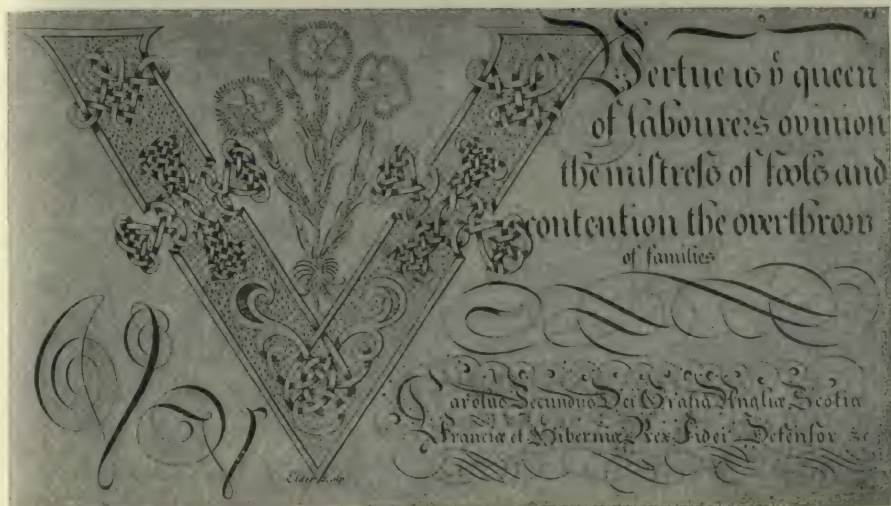 Vertue is yͤ queen
of labourers opinion
the mistress of fools and
contention the overthrow
of families
Carolus Secundus Dei Gratiâ Angliæ Scotiæ
Franciæ et Hiberniæ Rex Fidei Defensor &c
V
Elder sculp